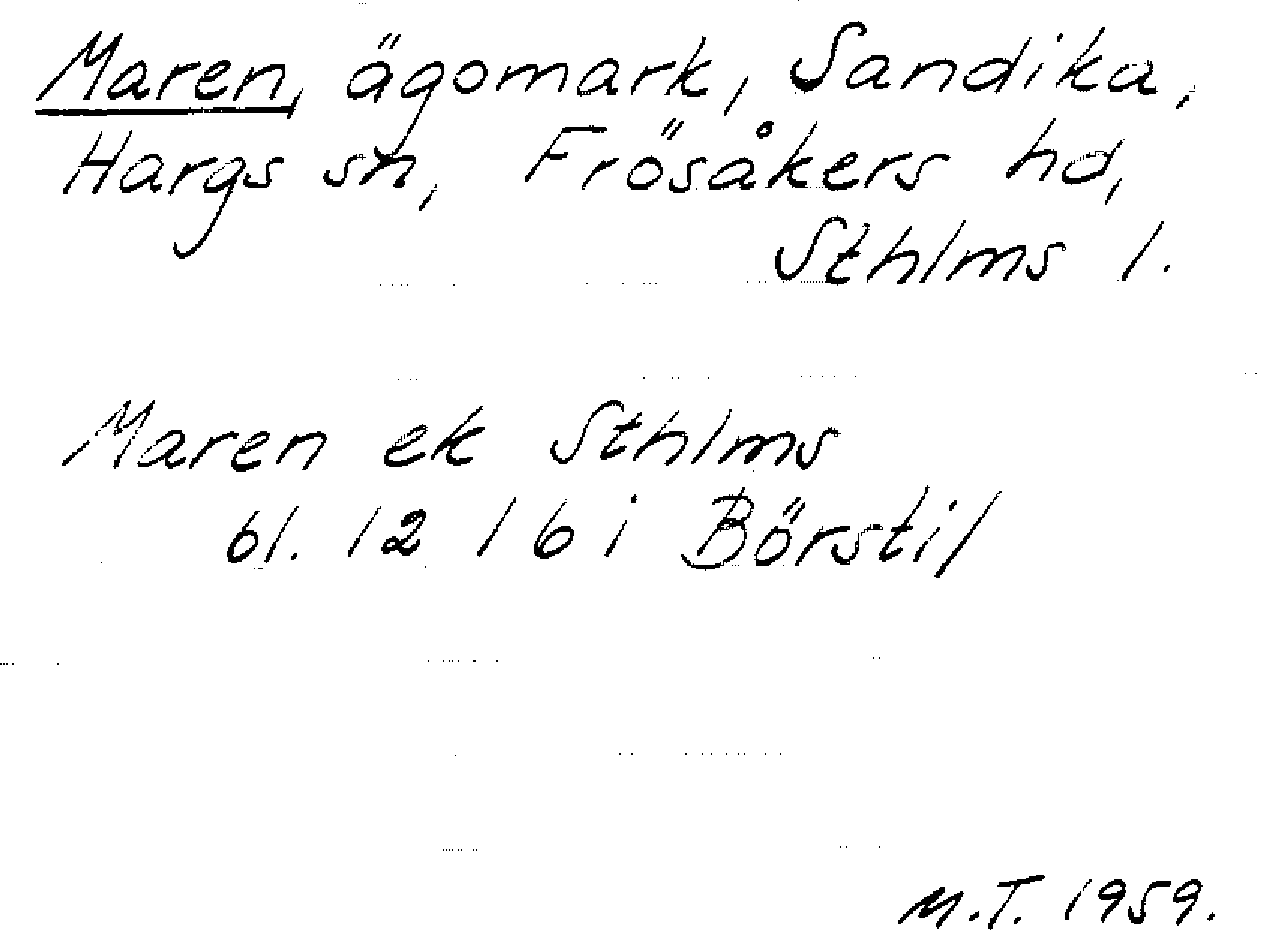 Maren, ägomark, Sandika,
Hargs sn, Frösåkers hd,
Sthlms l.
Maren ek Sthlms
bl. 12 16 i Börstil
M.T. 1959.